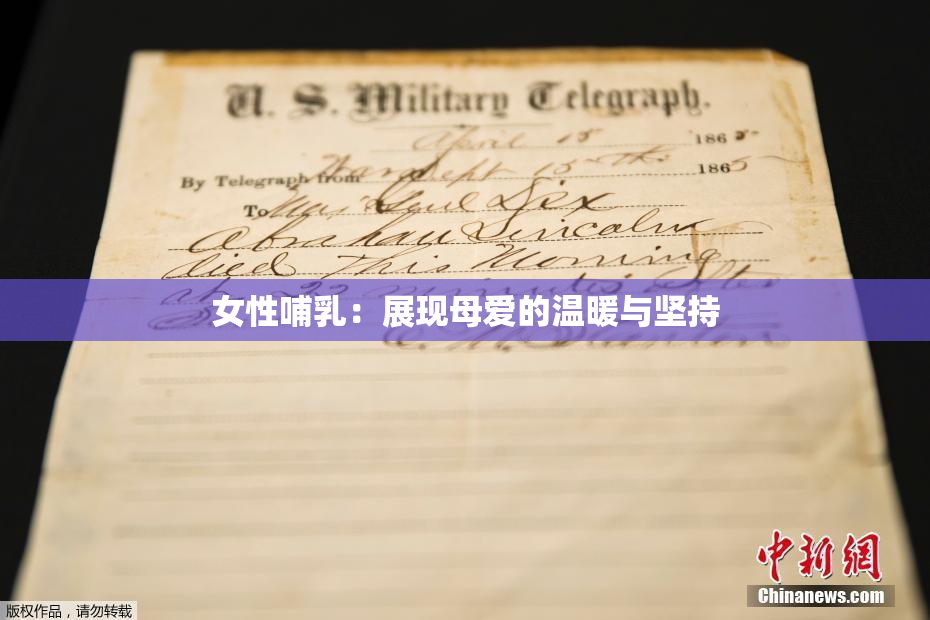 U. S. Military Telegraph.
April 15 1865
By Telegraph from War Dept 15th 1865
To Maj Genl Dix
Abraham Lincoln
died This Morning
at 22 minutes after
女性哺乳：展现母爱的温暖与坚持
E. M. Stanton
中新网
Chinanews.com
版权作品，请勿转载